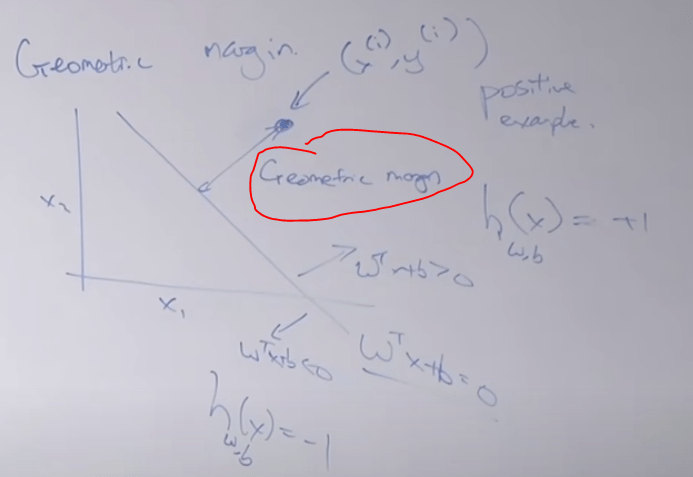 Geometric margin. (x^(i), y^(i))
positive
example.
Geometric margin
h_w,b(x) = +1
x_2
w^T x+b > 0
x_1
w^T x+b < 0
w^T x+b = 0
h_w,b(x) = -1